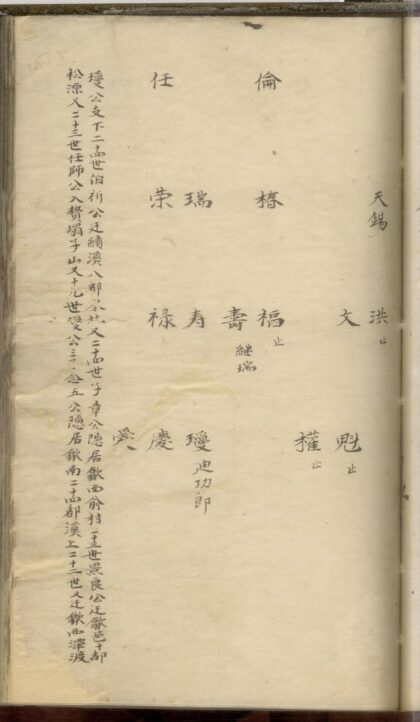 天錫 洪 止
文 魁 止
權 止
倫 椿 福 止
壽 繼瑞
瑞 寿 璦 迪功郎
任 荣 禄 慶
璦公支下二十四世伯祈公迁績溪八都又二十四世子章公隱居歙西俞村二十三世景良公迁歙邑十都
松源又二十三世任師公入赘塌子山又十九世璦公三子念五公隱居歙南二十四都溪上二十二世又迁歙西潭渡